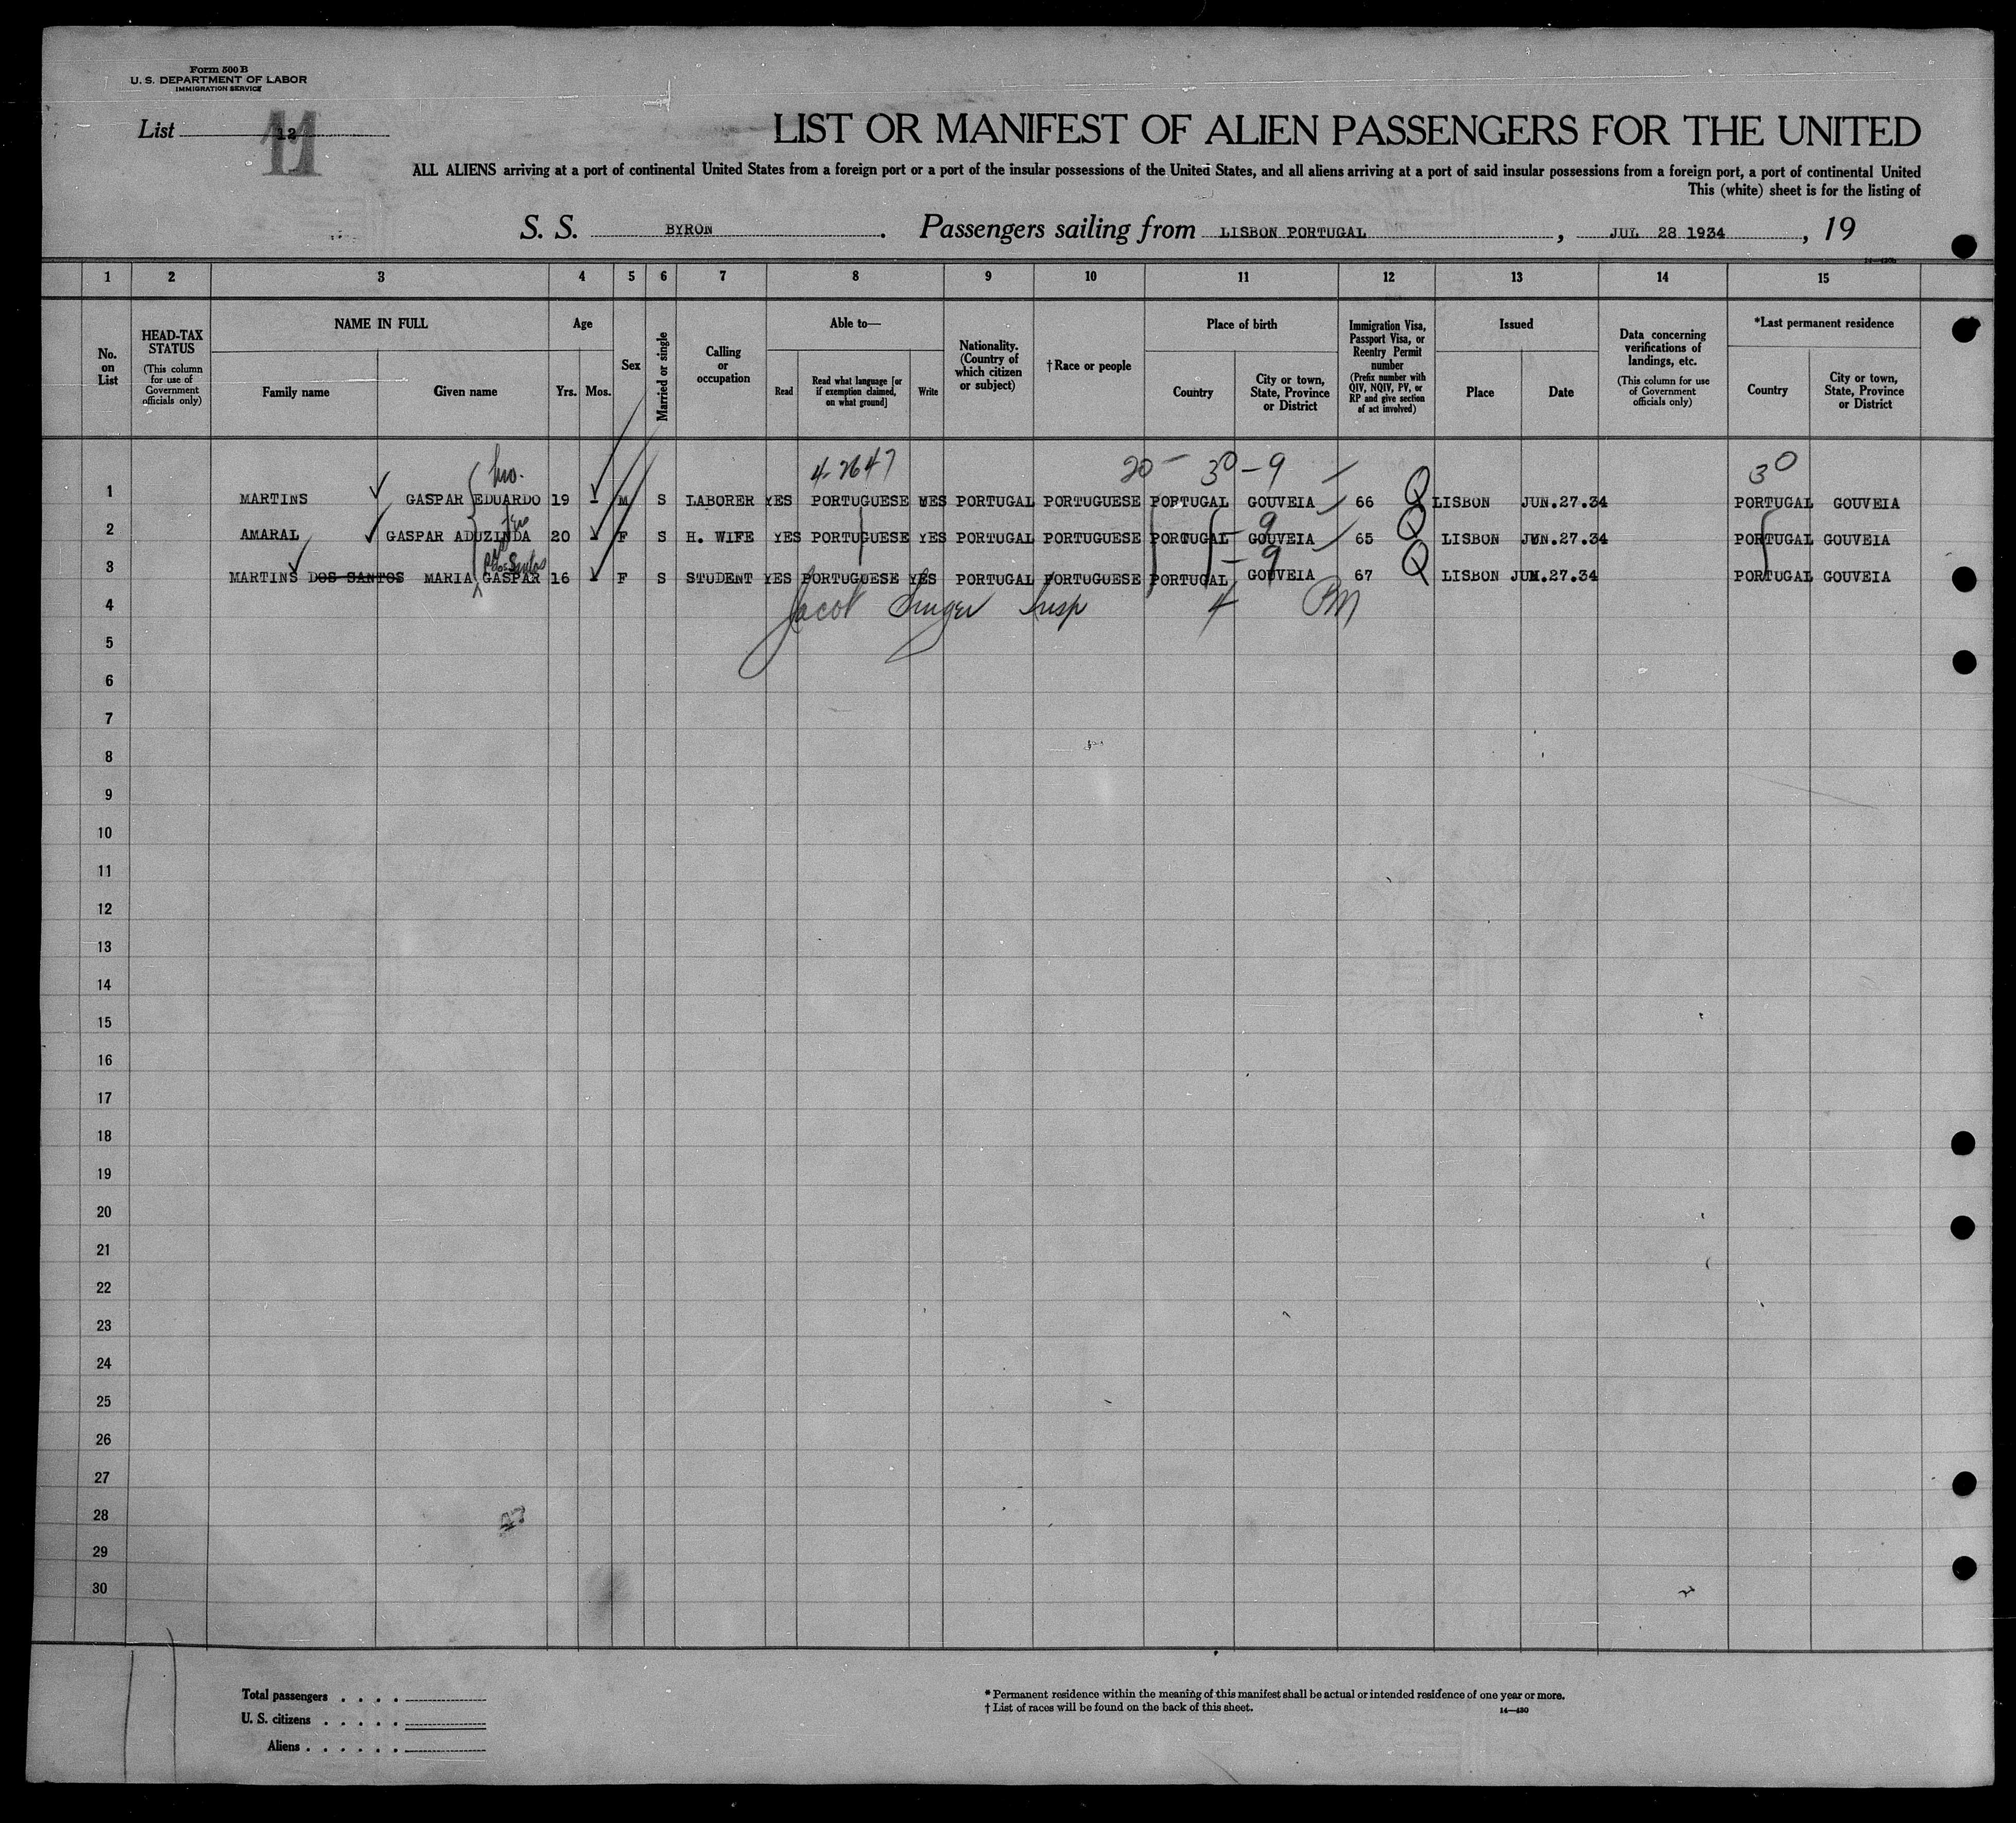 Form 500 B
U. S. DEPARTMENT OF LABOR
IMMIGRATION SERVICE
List 12
11
LIST OR MANIFEST OF ALIEN PASSENGERS FOR THE UNITED
ALL ALIENS arriving at a port of continental United States from a foreign port or a port of the insular possessions of the United States, and all aliens arriving at a port of said insular possessions from a foreign port, a port of continental United
This (white) sheet is for the listing of
S. S. BYRON. Passengers sailing from LISBON PORTUGAL, JUL 28 1934, 19
1 2 3 4 5 6 7 8 9 10 11 12 13 14 15
No. on List
HEAD-TAX STATUS
(This column for use of Government officials only)
NAME IN FULL
Family name Given name
Age
Yrs. Mos.
Sex
Married or single
Calling or occupation
Able to—
Read
Read what language [or if exemption claimed, on what ground]
Write
Nationality. (Country of which citizen or subject)
†Race or people
Place of birth
Country
City or town, State, Province or District
Immigration Visa, Passport Visa, or Reentry Permit number
(Prefix number with QIV, NQIV, PV, or RP and give section of act involved)
Issued
Place Date
Data concerning verifications of landings, etc.
(This column for use of Government officials only)
*Last permanent residence
Country
City or town, State, Province or District
20 - 30 - 9 30
1 MARTINS GASPAR EDUARDO 19 - M S LABORER YES PORTUGUESE YES PORTUGAL PORTUGUESE PORTUGAL GOUVEIA 66 Q LISBON JUN.27.34 PORTUGAL GOUVEIA
9
2 AMARAL GASPAR ADUZINDA 20 - F S H. WIFE YES PORTUGUESE YES PORTUGAL PORTUGUESE PORTUGAL GOUVEIA 65 Q LISBON JUN.27.34 PORTUGAL GOUVEIA
dos Santos 9
3 MARTINS DOS SANTOS MARIA GASPAR 16 - F S STUDENT YES PORTUGUESE YES PORTUGAL PORTUGUESE PORTUGAL GOUVEIA 67 Q LISBON JUN.27.34 PORTUGAL GOUVEIA
4 Jacob Insp 4
5
6
7
8
9
10
11
12
13
14
15
16
17
18
19
20
21
22
23
24
25
26
27
28
29
30
Total passengers . . . .
U. S. citizens . . . . .
Aliens . . . . . .
* Permanent residence within the meaning of this manifest shall be actual or intended residence of one year or more.
† List of races will be found on the back of this sheet.
14—430